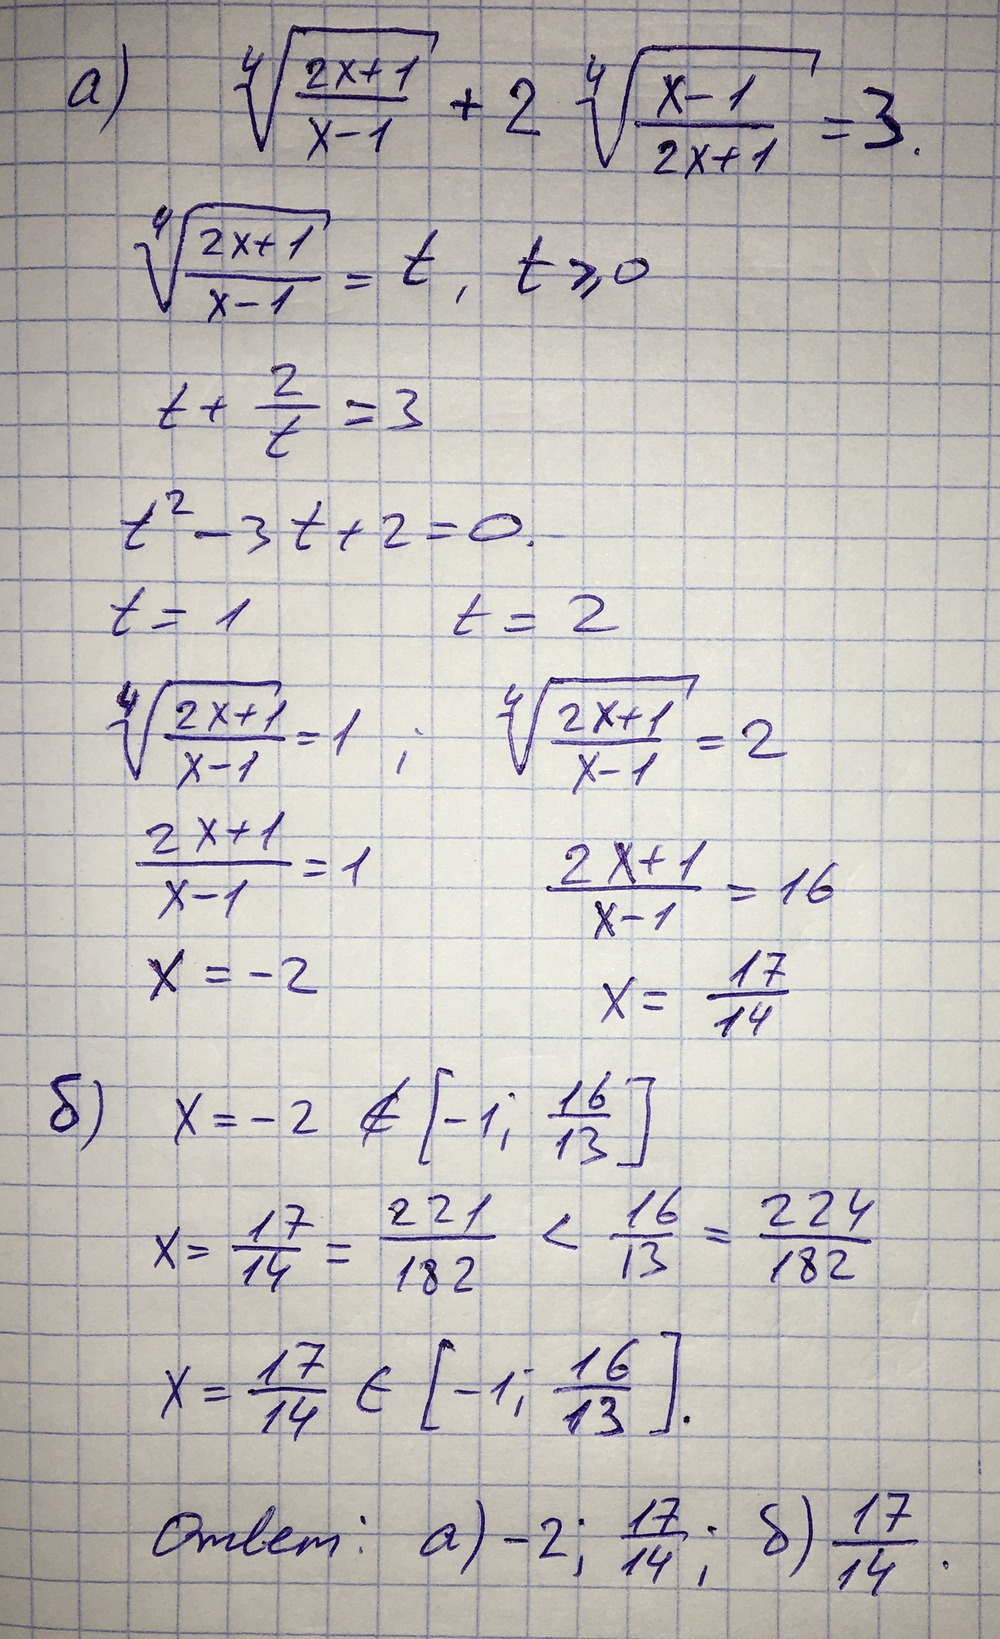 а) ∜((2x+1)/(x-1)) + 2 ∜((x-1)/(2x+1)) = 3.
∜((2x+1)/(x-1)) = t, t ⩾ 0
t + 2/t = 3
t² - 3t + 2 = 0.
t = 1 t = 2
∜((2x+1)/(x-1)) = 1 ; ∜((2x+1)/(x-1)) = 2
(2x+1)/(x-1) = 1 (2x+1)/(x-1) = 16
x = -2 x = 17/14
б) x = -2 ∉ [-1; 16/13]
x = 17/14 = 221/182 < 16/13 = 224/182
x = 17/14 ∈ [-1; 16/13].
Ответ: а) -2; 17/14; б) 17/14.